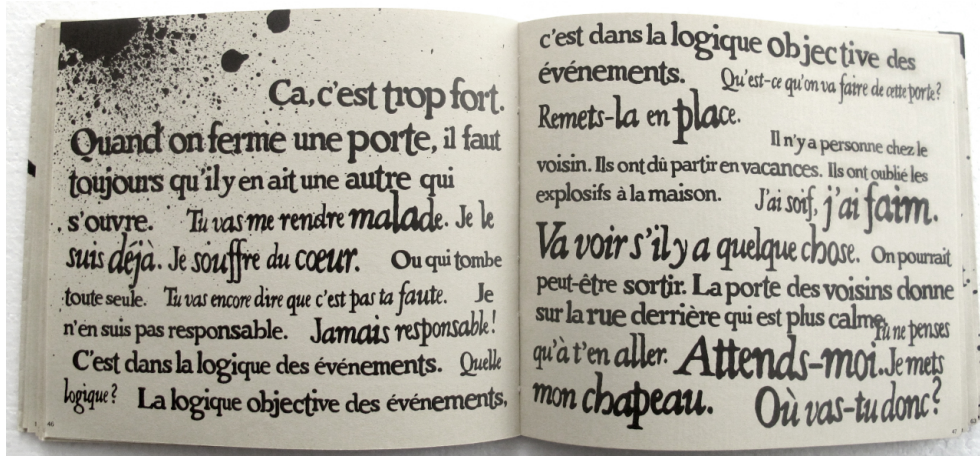 Ça, c'est trop fort.
Quand on ferme une porte, il faut
toujours qu'il y en ait une autre qui
s'ouvre. Tu vas me rendre malade. Je le
suis déjà. Je souffre du cœur. Ou qui tombe
toute seule. Tu vas encore dire que c'est pas ta faute. Je
n'en suis pas responsable. Jamais responsable!
C'est dans la logique des événements. Quelle
logique? La logique objective des événements,
46
c'est dans la logique objective des
événements. Qu'est-ce qu'on va faire de cette porte?
Remets-la en place.
Il n'y a personne chez le
voisin. Ils ont dû partir en vacances. Ils ont oublié les
explosifs à la maison. J'ai soif, j'ai faim.
Va voir s'il y a quelque chose. On pourrait
peut-être sortir. La porte des voisins donne
sur la rue derrière qui est plus calme. Tu ne penses
qu'à t'en aller. Attends-moi. Je mets
mon chapeau. Où vas-tu donc?